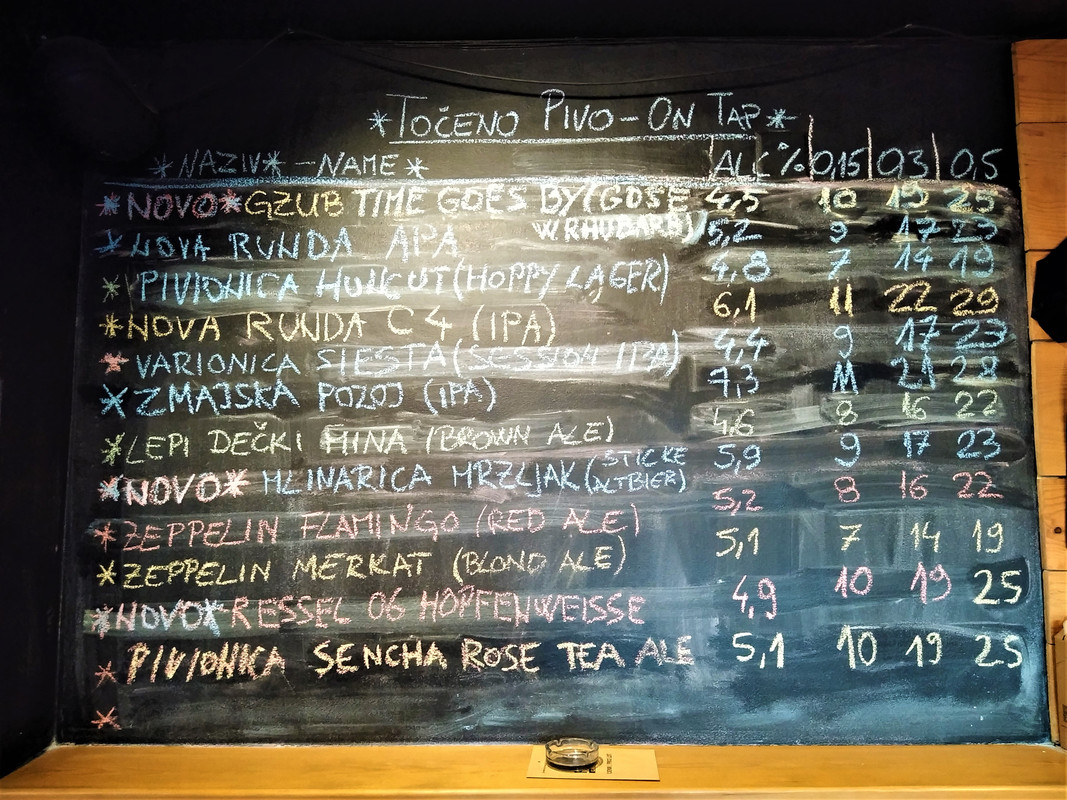 *TOČENO PIVO-ON TAP*
*NAZIV* -NAME* ALC % 0,15 0,3 0,5
*NOVO* GZUB TIME GOES BY (GOSE W. RHUBARB) 4,5 10 19 25
*NOVA RUNDA APA 5,2 9 17 23
*PIVIONICA HULCUT (HOPPY LAGER) 4,8 7 14 19
*NOVA RUNDA C4 (IPA) 6,1 11 22 29
*VARIONICA SIESTA (SESSION IPA) 4,4 9 17 23
*ZMAJSKA POZOJ (IPA) 7,3 11 21 28
*LEPI DEČKI MINA (BROWN ALE) 4,6 8 16 22
*NOVO* MLINARICA MRZLJAK (STICKE ALTBIER) 5,9 9 17 23
*ZEPPELIN FLAMINGO (RED ALE) 5,2 8 16 22
*ZEPPELIN MERKAT (BLOND ALE) 5,1 7 14 19
*NOVO* RESSEL 06 HOPFENWEISSE 4,9 10 19 25
*PIVIONICA SENCHA ROSE TEA ALE 5,1 10 19 25
*